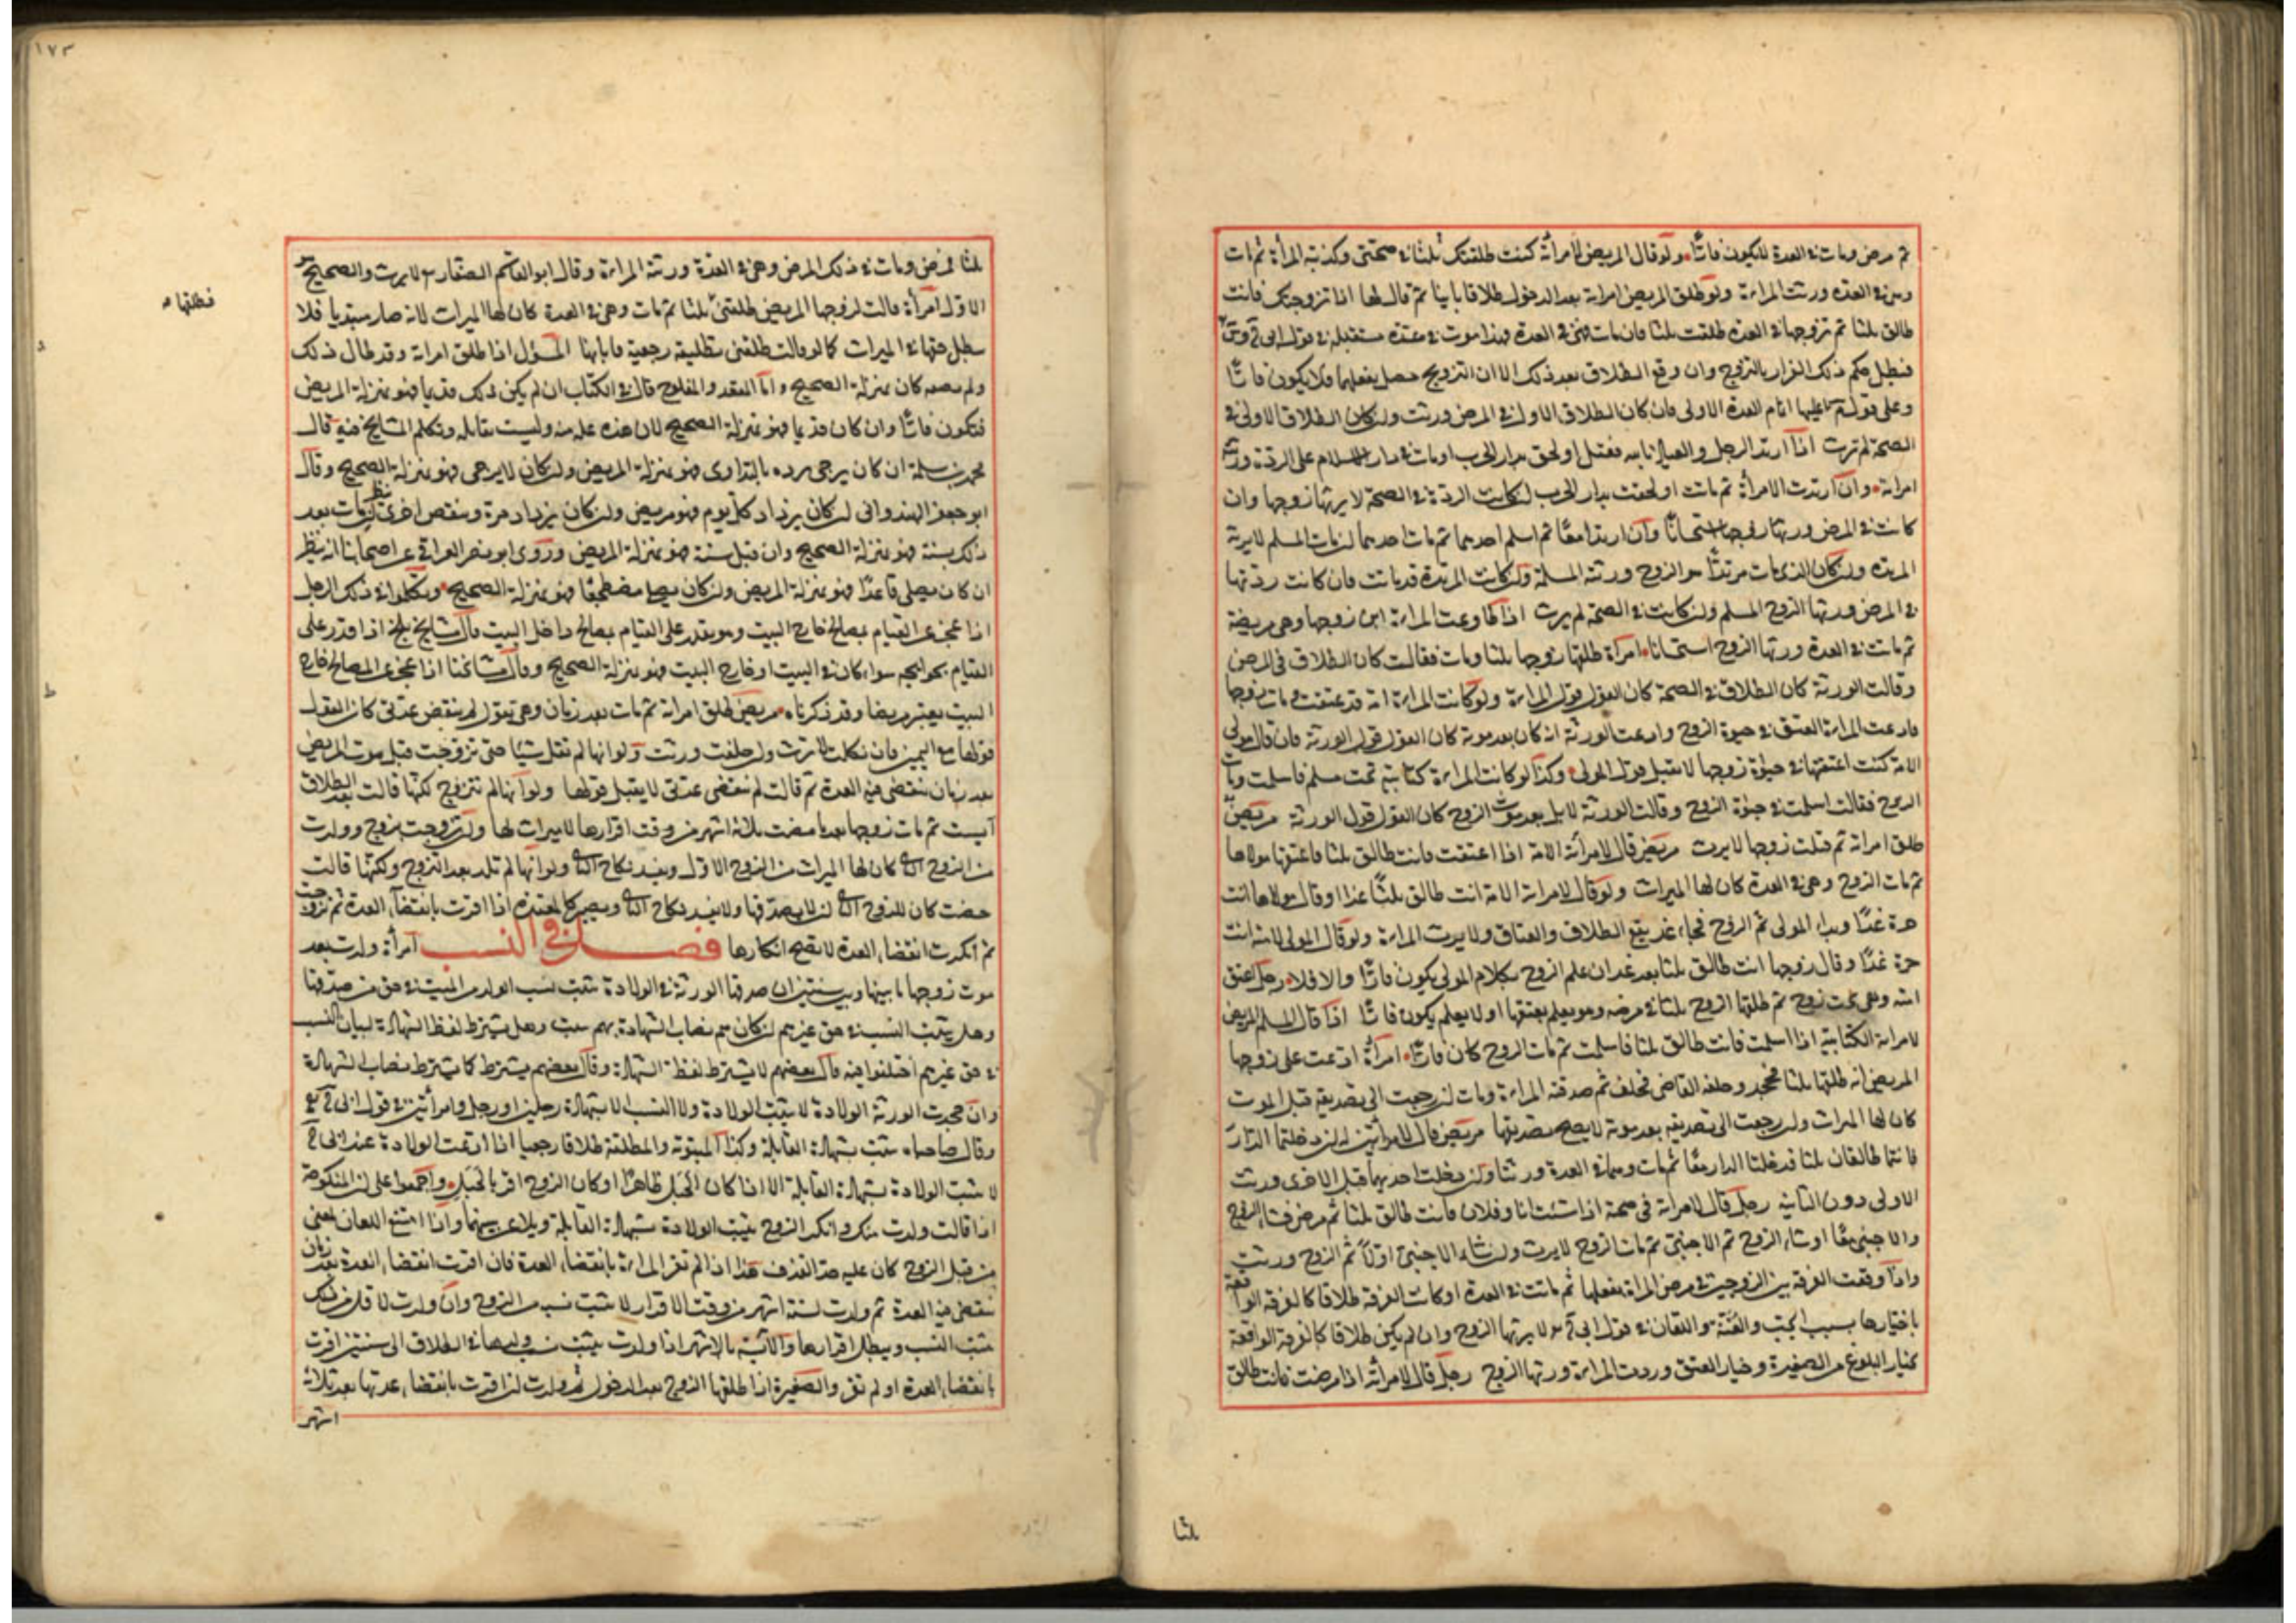 ثم مرض ومات في العدة لا يكون فارًّا ولو قال المريض لامرأته كنت طلقتك ثلثا في صحتي وكذبته المرأة ثم مات
وهي في العدة ورثت المراءة ولو طلق المريض امراته بعد الدخول طلاقا باينا ثم قال لها اذا تزوجتك فانت
طالق ثلثا ثم تزوجها في العدة طلقت ثلثا فان مات وهي في العدة فهذا موت في عدة مستقبلة في قول ابي
فبطل حكم ذلك الفرار بالتزوج وان وقع الطلاق بعد ذلك الا ان التزويج حصل بفعلها فلا يكون فارًّا
وعلى قول عليها اتمام العدة الاولى فان كان الطلاق الاول في المرض ورثت وان كان الطلاق الاول في
الصحة لم ترث اذا ارتد الرجل والعياذ بالله فقتل او لحق بدار الحرب او مات في دار الاسلام على الردة ورثته
امراته وان ارتدت الامرأة ثم ماتت او لحقت بدار الحرب ان كانت الردة في الصحة لا يرثها زوجها وان
كانت في المرض ورثها زوجها استحسانًا وان ارتدا معًا ثم اسلم احدهما ثم مات احدهما ان مات المسلم لا يرثه
المرتد وان كان الذي مات مرتدًّا هو الزوج ورثته المسلمة وان كانت المرتدة قد ماتت فان كانت ردتها
في المرض ورثها الزوج المسلم وان كانت في الصحة لم يرث اذا طاوعت المراءة ابن زوجها وهي مريضة
ثم ماتت في العدة ورثها الزوج استحسانا امرأة طلقها زوجها ثلثا ومات فقالت كان الطلاق في المرض
وقالت الورثة كان الطلاق في الصحة كان القول قول المراءة ولو كانت المراءة امة قد عتقت ومات زوجها
فادعت المراءة العتق في حيوة الزوج وادعت الورثة انه كان بعد موته كان القول قول الورثة فان قال مولى
الامة كنت اعتقتها في حيوة زوجها لا يقبل قول المولى وكذا لو كانت المراءة كتابية تحت مسلم فاسلمت ومات
الزوج فقالت اسلمت في حيوة الزوج وقالت الورثة لا بل بعد موت الزوج كان القول قول الورثة مريض
طلق امراته ثم قتلت زوجها لا يرث مريض قال لامرأته الامة اذا اعتقت فانت طالق ثلثا فاعتقها مولاها
ثم مات الزوج وهي في العدة كان لها الميراث ولو قال لامراته الامة انت طالق ثلثًا غدا وقال مولاها انت
حرة غدًا وبدا المولى ثم الزوج فجاء غد يقع الطلاق والعتاق ولا يرث المراءة ولو قال المولى لامته انت
حرة غدًا وقال زوجها انت طالق ثلثا بعد غد ان علم الزوج بكلام المولى يكون فارًّا والا فلا رجل اعتق
امته وهي تحت زوج ثم طلقها الزوج ثلثا في مرضه وهو يعلم بعتقها او لا يعلم يكون فارًّا اذا قال المسلم المريض
لامراته الكتابية اذا اسلمت فانت طالق ثلثا فاسلمت ثم مات الزوج كان فارًّا امرأة ادعت على زوجها
المريض انه طلقها ثلثا فجحد وحلفه القاضي فحلف ثم صدقته المراءة ومات ان رجعت الى تصديقه قبل الموت
كان لها الميراث وان رجعت الى تصديقه بعد موته لا يصح تصديقها مريض قال لامراتين له ان دخلتما الدار
فانتما طالقان ثلثا فدخلتا الدار معًا ثم مات وهما في العدة ورثتا وان دخلت احديهما قبل الاخرى ورثت
الاولى دون الثانية رجل قال لامراته في صحة اذا شئت انا وفلان فانت طالق ثلثا ثم مرض فشاء الزوج
والاجنبي معًا او شاء الزوج ثم الاجنبي ثم مات الزوج لا يرث وان شاء الاجنبي اولًا ثم الزوج ورثت
واذا وقعت الفرقة بين الزوجين في مرض المراة بفعلها ثم ماتت في العدة او كانت الفرقة طلاقا كالفرقة الواقعة
باختيارها بسبب الجب والعنة واللعان في قول ابي لا يرثها الزوج وان لم يكن طلاقا كالفرقة الواقعة
بخيار البلوغ من الصغيرة وخيار العتق وردت المراءة ورثها الزوج رجل قال لامرأته اذا مرضت فانت طالق
ثلثا
١٧٣
ثلثا فمرض ومات في ذلك المرض وهي في العدة ورثته المراءة وقال ابو القاسم الصفار لا يرث والصحيح هو
الاول امرأة قالت لزوجها المريض طلقني ثلثا ثم مات وهي في العدة كان لها الميراث لانه صار مبتديا فلا
يبطل حقها في الميراث كما لو قالت طلقني تطليقة رجعية فابانها المسلول اذا طلق امراته وقد طال ذلك
فطلقها
ولم يضعفه كان بمنزلة الصحيح واما المقعد والمفلوج قال في الكتاب ان لم يكن ذلك قديما فهو بمنزلة المريض
فتكون فارًّا وان كان قديما فهو بمنزلة الصحيح لان هذه علة مزمنة وليست بقاتلة وتكلم المشايخ فيه قال
محمد بن سلمة ان كان يرجى برءه بالتداوى فهو بمنزلة المريض وان كان لا يرجى فهو بمنزلة الصحيح وقال
ابو جعفر الهندواني ان كان يزداد كل يوم فهو مريض وان كان يزداد مرة وينقص اخرى ينظر ان مات بعد
ذلك بسنة فهو بمنزلة الصحيح وان قبل سنة فهو بمنزلة المريض وروى ابو نصر العراقي عن اصحابنا انه ينظر
ان كان يصلي قاعدًا فهو بمنزلة المريض وان كان يصلي مضطجعًا فهو بمنزلة الصحيح وتكلموا في ذلك الرجل
اذا عجز عن القيام بمصالح خارج البيت وهو يقدر على القيام بمصالح داخل البيت قال مشايخ بلخ اذا قدر على
القيام بحوايجه سواء كان في البيت او خارج البيت فهو بمنزلة الصحيح وقال مشائخنا اذا عجز عن المصالح خارج
البيت يعتبر مريضا وقد ذكرناه مريض طلق امراته ثم مات بعد زمان وهي تقول لم تنقض عدتي كان القول
قولها مع اليمين فان نكلت لا ترث وان حلفت ورثت ولو انها لم تقل شيئا حتى تزوجت قبل موت المريض
بعد زمان تنقضي فيه العدة ثم قالت لم تنقضي عدتي لا يقبل قولها ولو انها لم تتزوج لكنها قالت بعد الطلاق
آيست ثم مات زوجها بعد ما مضت ثلاثة اشهر من وقت اقرارها لا ميراث لها وان تزوجت بزوج وولدت
من الزوج الثاني كان لها الميراث من الزوج الاول ويفسد نكاح الثاني ولو انها لم تلد بعد التزوج ولكنها قالت
حضت كان للزوج الثاني ان لا يصدقها ولا يفسد نكاح الثاني ويصير كالمعتدة اذا اقرت بانقضاء العدة ثم تزوجت
ثم انكرت انقضاء العدة لا يصح انكارها فصل في النسب امرأة ولدت بعد
موت زوجها ما بينها وبين سنتين ان صدقها الورثة في الولادة يثبت نسب الولد من الميت في حق من صدقها
وهل يثبت النسب في حق غيرهم ان كان بهم نصاب الشهادة بهم يثبت وهل يشترط لفظ الشهادة لبيان النسب
في حق غيرهم اختلفوا فيه قال بعضهم لا يشترط لفظ الشهادة وقال بعضهم يشترط كما يشترط نصاب الشهادة
وان جحدت الورثة الولادة لا يثبت الولادة ولا النسب الا بشهادة رجلين او رجل وامرأتين في قول ابي
وقال صاحباه يثبت بشهادة القابلة وكذا المبتوتة والمطلقة طلاقا رجعيا اذا ادعت الولادة عند ابي
لا يثبت الولادة بشهادة القابلة الا اذا كان الحبل ظاهرًا او كان الزوج اقر بالحبل واجمعوا على ان المنكوحة
اذا قالت ولدت منك وانكر الزوج يثبت الولادة بشهادة القابلة ويلاعن بينهما واذا امتنع اللعان لمعنى
من قبل الزوج كان عليه حد القذف هذا اذا لم تقر المراءة بانقضاء العدة فان اقرت انقضاء العدة بعد زمان
تنقضي فيه العدة ثم ولدت لستة اشهر من وقت الاقرار لا يثبت نسبه من الزوج وان ولدت لاقل من ذلك
يثبت النسب ويبطل اقرارها والآئسة بالاشهر اذا ولدت يثبت نسب ولدها في الطلاق الى سنتين اقرت
بانقضاء العدة او لم تقر والصغيرة اذا طلقها الزوج بعد الدخول ثم ولدت ان اقرت بانقضاء عدتها بعد ثلاثة
اشهر